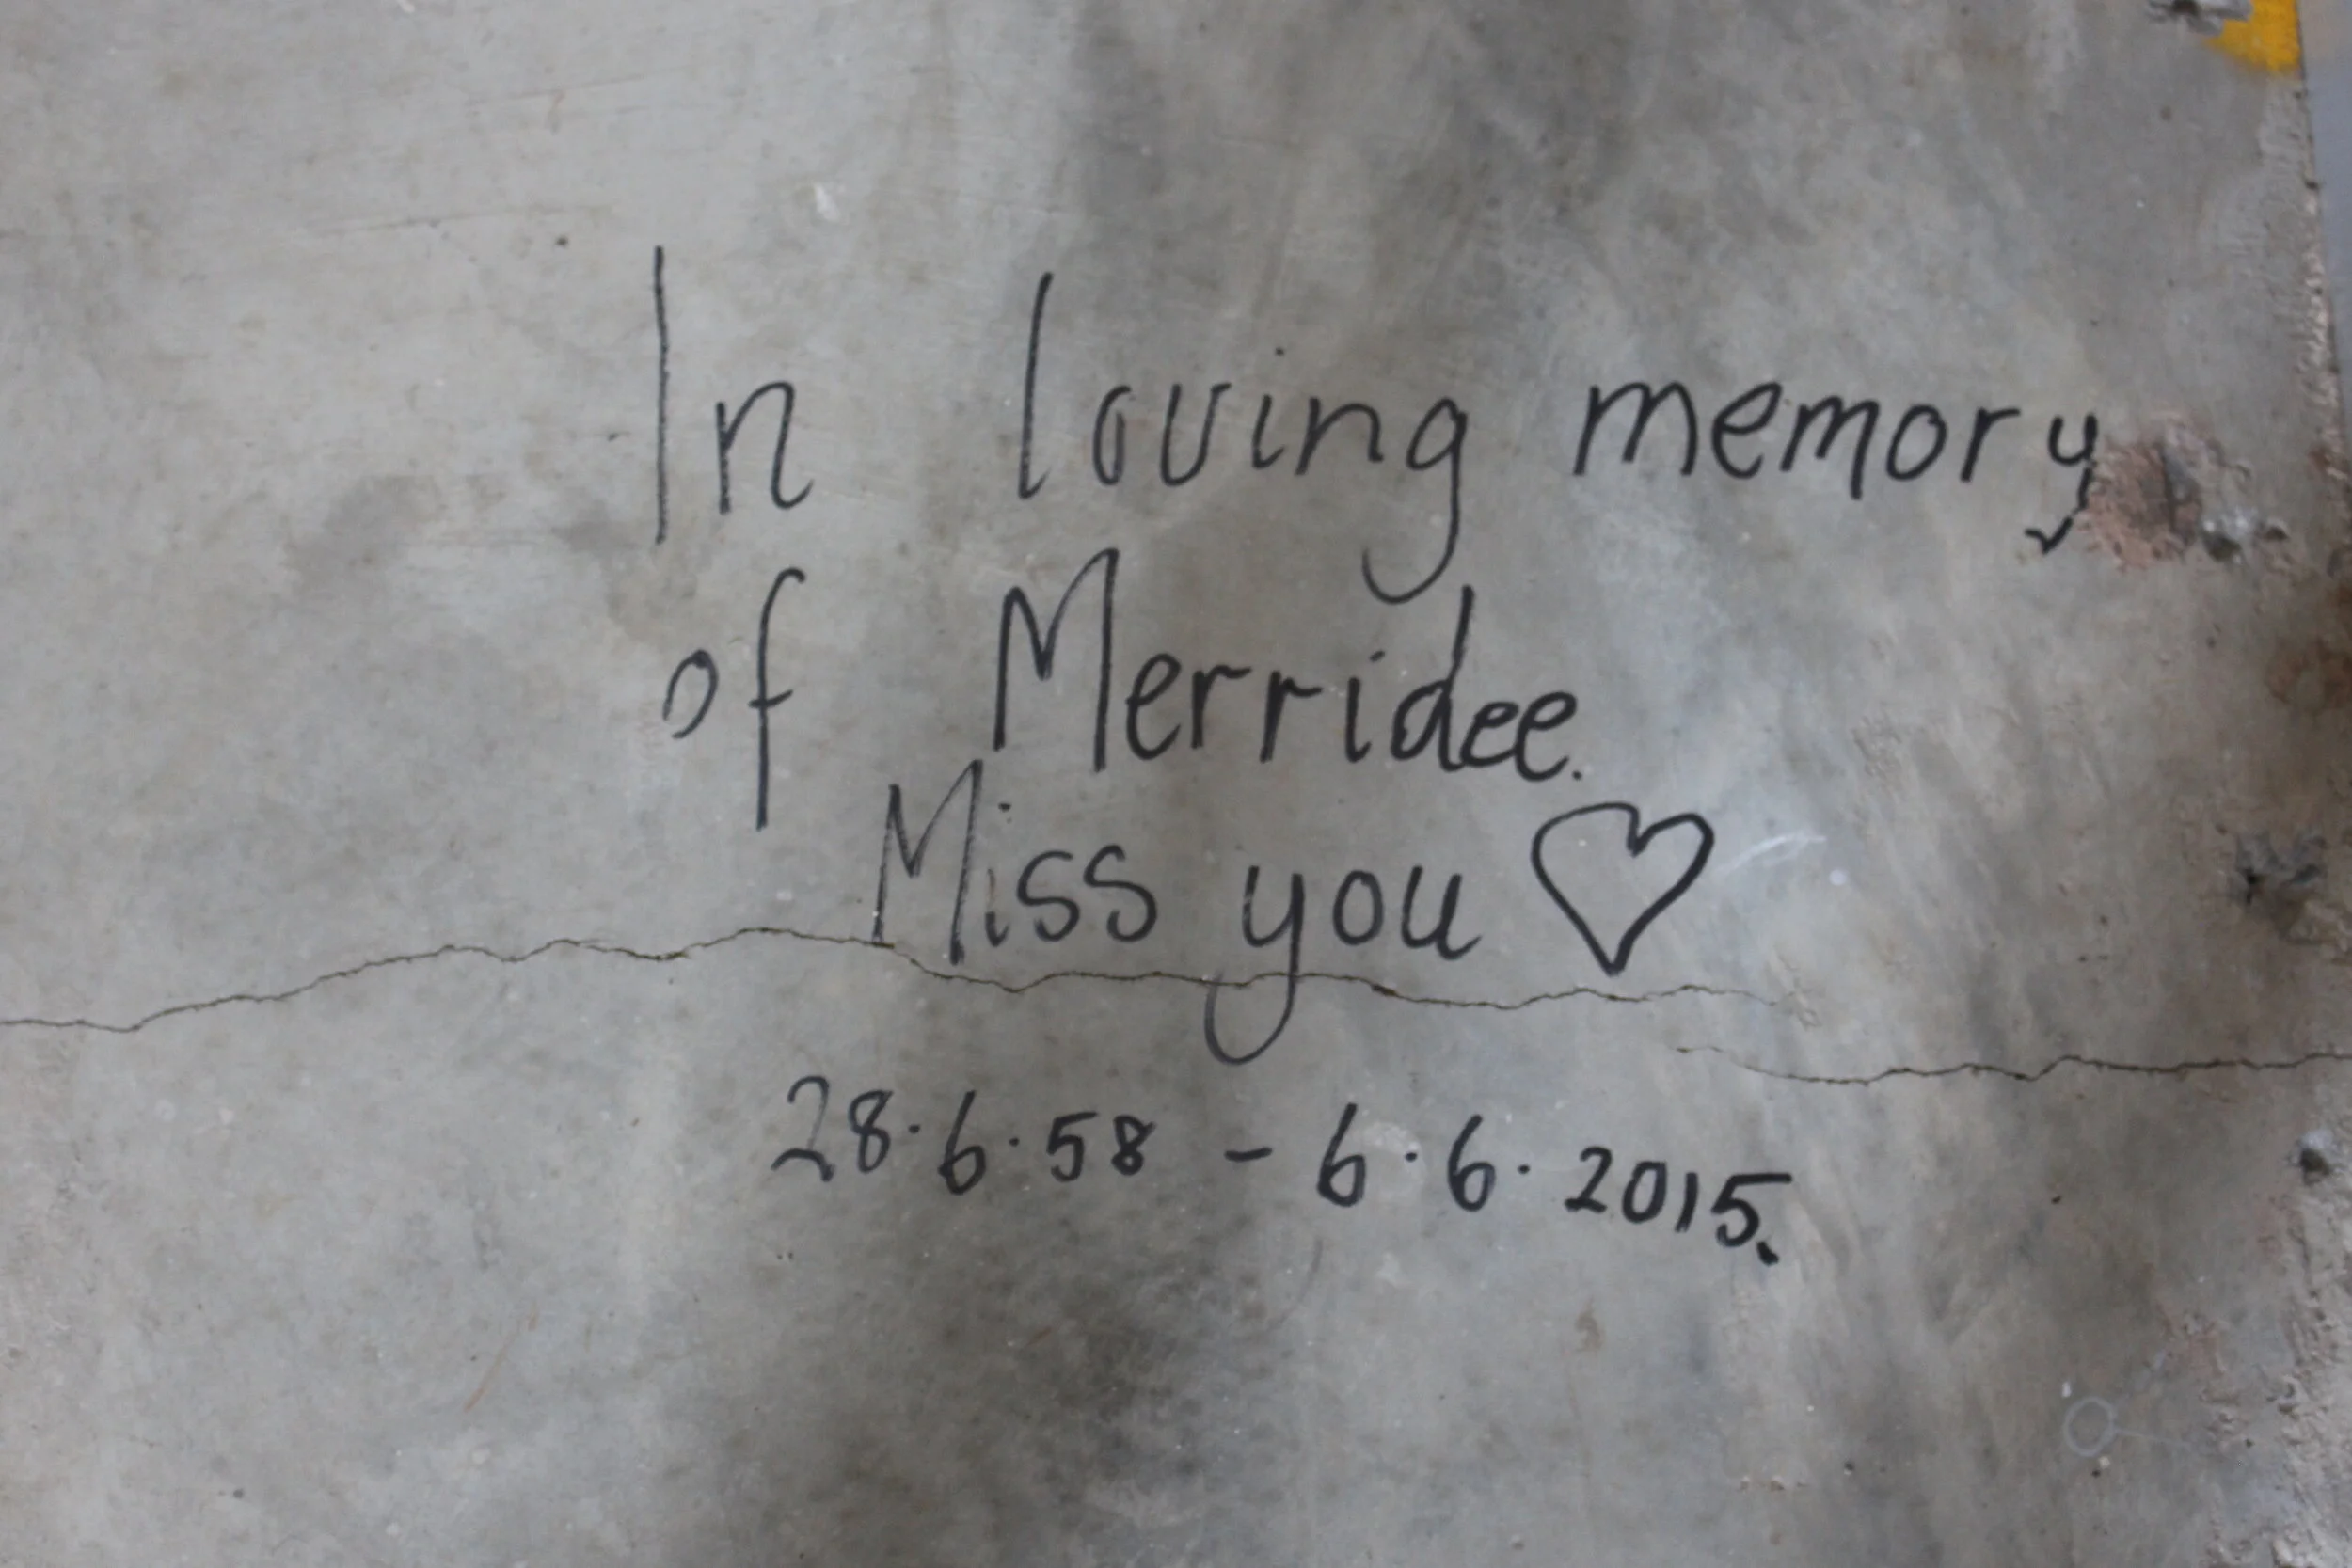 In loving memory
of Merridee.
Miss you ♡
28.6.58 - 6.6.2015.